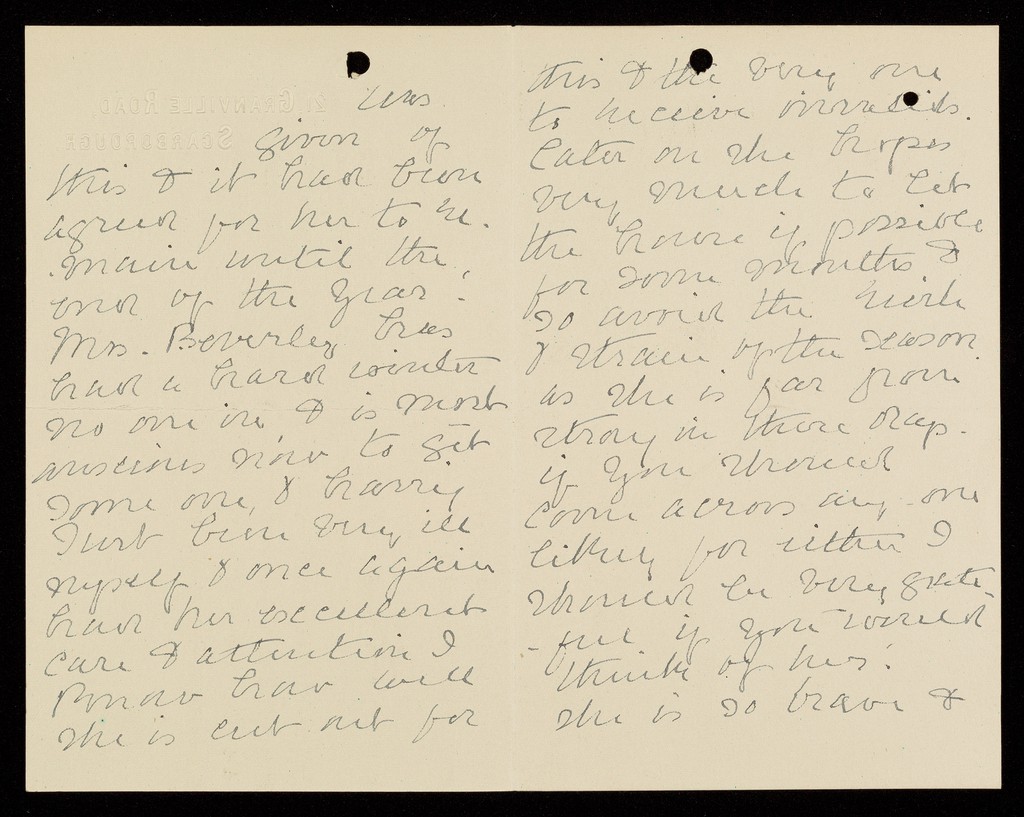 21, GRANVILLE ROAD,
SCARBOROUGH
was
given of
this & it had been
agreed for her to re.
-main until the
end of the year.
Mrs. Beverley has
had a hard winter
no one in, & is most
anxious now to get
some one, & having
Just been very ill
myself & once again
had her excellent
care & attention I
know how well
she is cut out for
this & the very one
to receive invalids.
Later on she hopes
very much to let
the house if possible
for some months &
so avoid the
& strain of the season
as she is far from
strong in these days.
if you should
come across any one
likely for either I
should be very grate-
-ful if you would
think of her.
she is so brave &